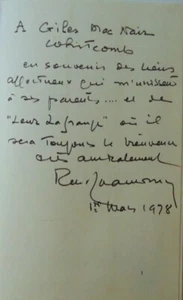 A Giles Mac Nair
Whitcomb
en souvenir des liens
affectueux qui m'unissent
à ses parents.... et de
"Leur Lagrange" où il
sera toujours le bienvenu
très amicalement
1 Mars 1978